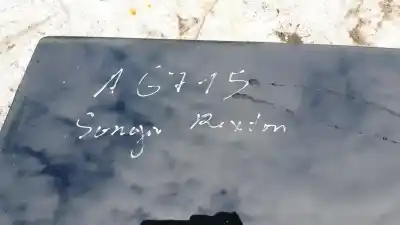 A G715
Songa Rexton